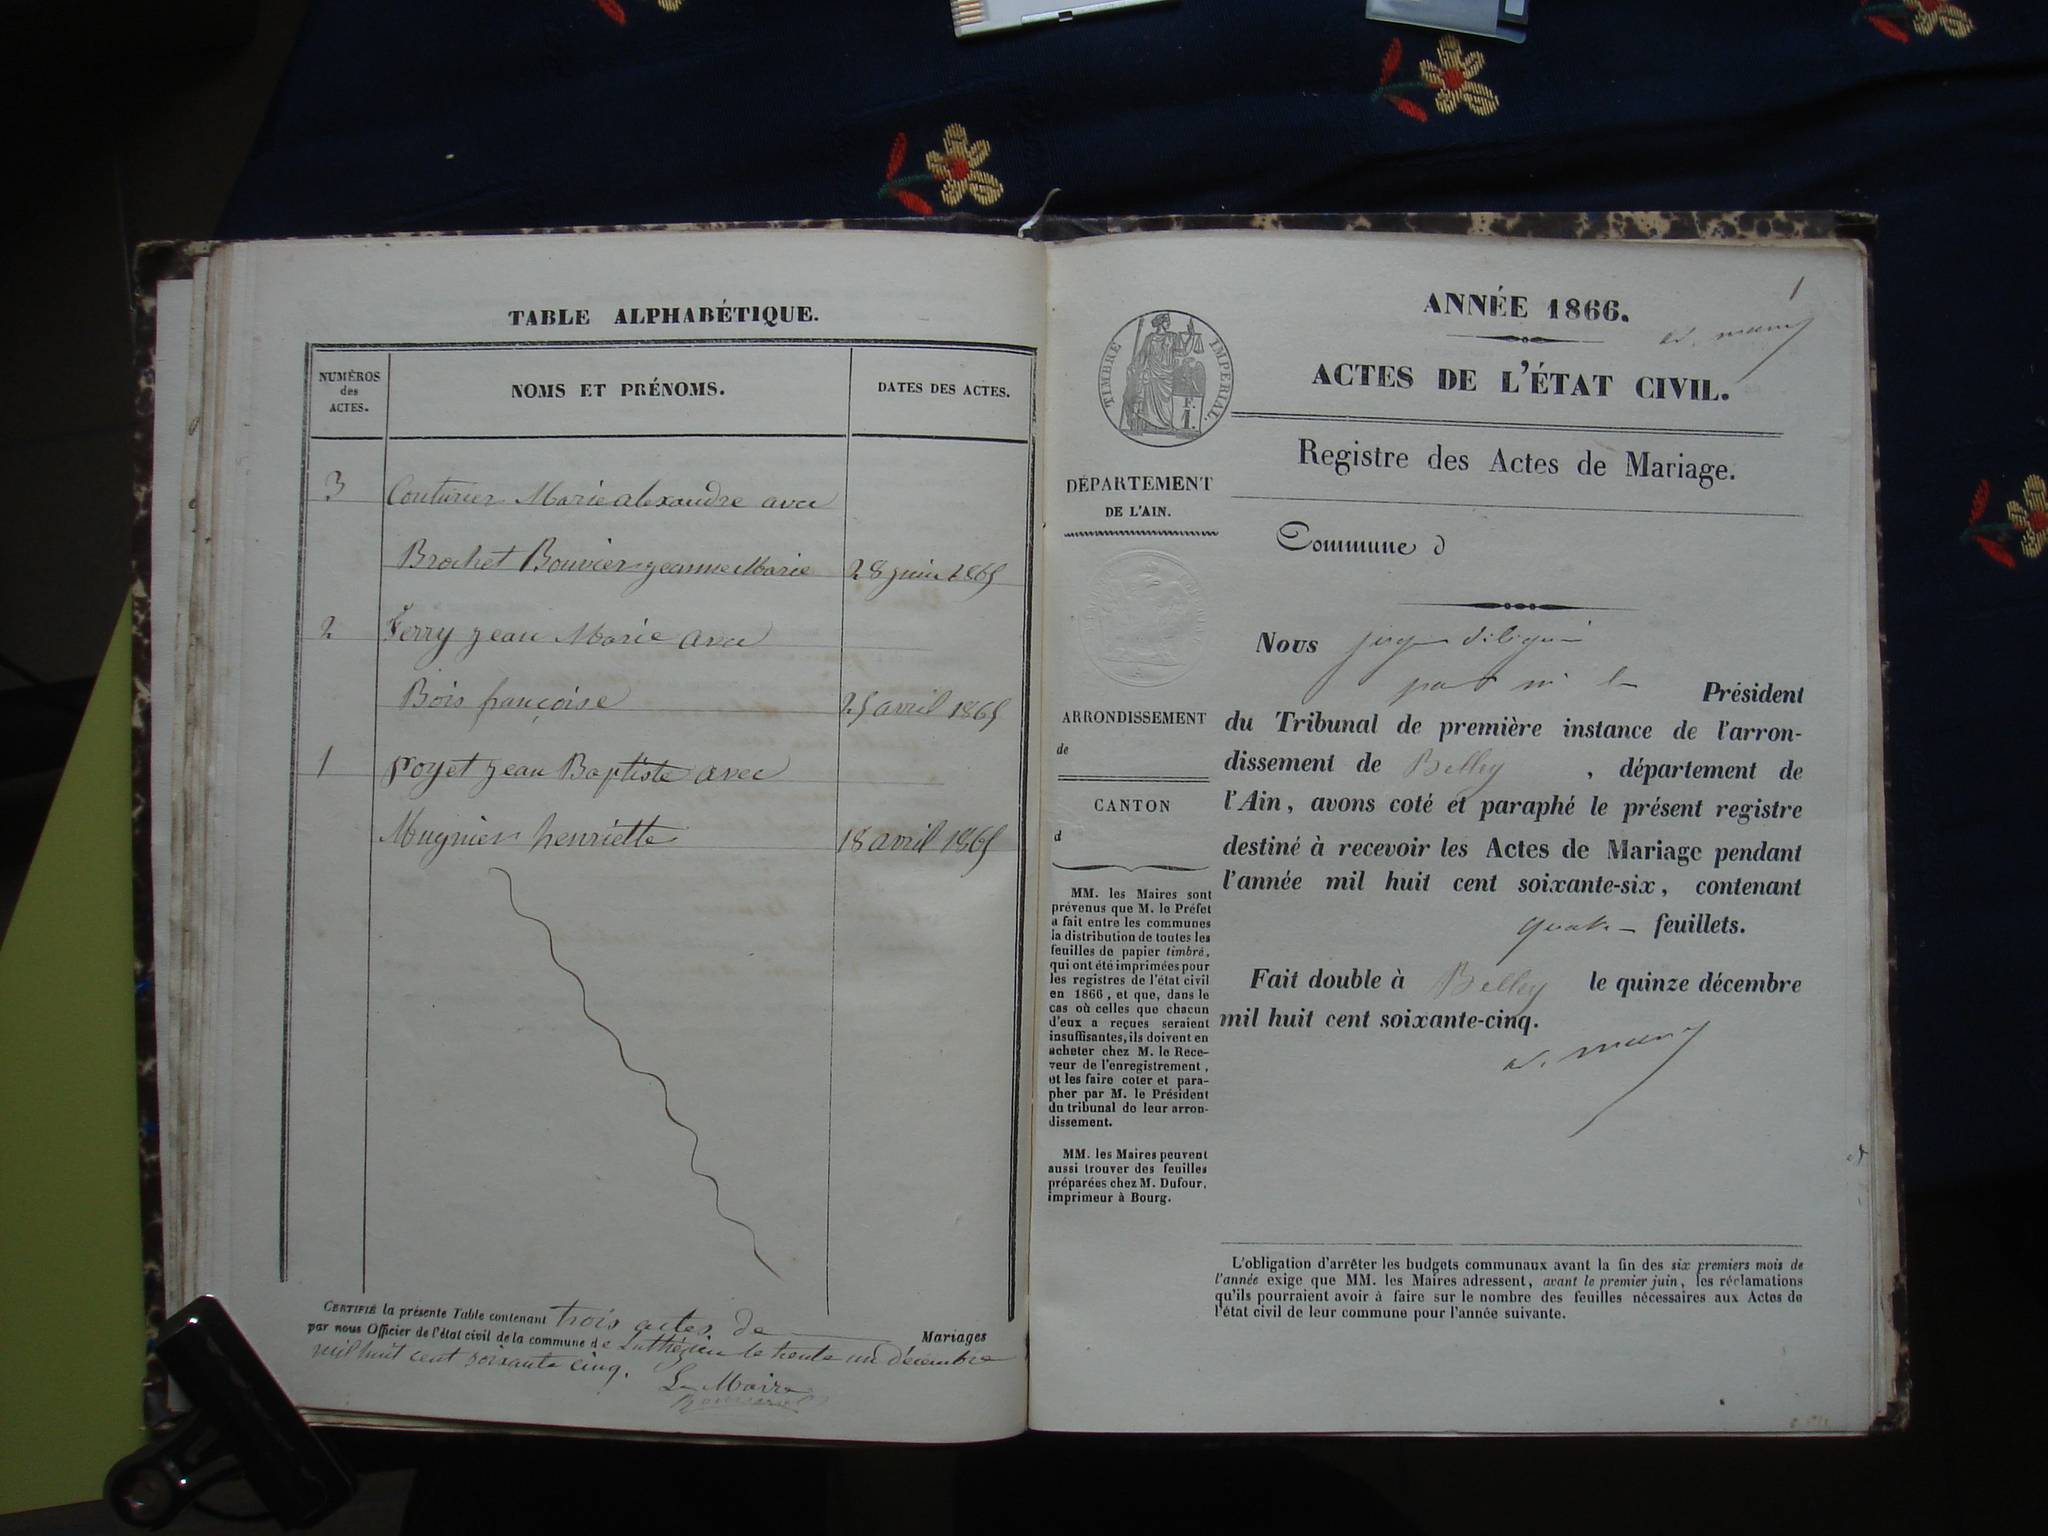 TABLE ALPHABÉTIQUE.
NUMÉROS
des
ACTES.
NOMS ET PRÉNOMS.
DATES DES ACTES.
3 Couturier Marie alexandre avec
Brochet Bouvier jeanne Marie 28 juin 1865
2 Ferry jean Marie avec
Bois françoise 25 avril 1865
1 poyet jean Baptiste avec
Mugnier henriette 18 avril 1865
CERTIFIÉ la présente Table contenant trois actes de Mariages
par nous Officier de l'état civil de la commune de Luthézieu le trente un décembre
mil huit cent soixante cinq.
Le Maire
1
ANNÉE 1866.
ACTES DE L'ÉTAT CIVIL.
TIMBRE IMPÉRIAL.
F.
1.
Registre des Actes de Mariage.
DÉPARTEMENT
DE L'AIN.
Commune d
ARRONDISSEMENT
de
CANTON
d
MM. les Maires sont
prévenus que M. le Préfet
a fait entre les communes
la distribution de toutes les
feuilles de papier timbré,
qui ont été imprimées pour
les registres de l'état civil
en 1866, et que, dans le
cas où celles que chacun
d'eux a reçues seraient
insuffisantes, ils doivent en
acheter chez M. le Rece-
veur de l'enregistrement,
et les faire coter et para-
pher par M. le Président
du tribunal de leur arron-
dissement.
MM. les Maires peuvent
aussi trouver des feuilles
préparées chez M. Dufour,
imprimeur à Bourg.
Nous juge délégué
par M. le Président
du Tribunal de première instance de l'arron-
dissement de Belley , département de
l'Ain, avons coté et paraphé le présent registre
destiné à recevoir les Actes de Mariage pendant
l'année mil huit cent soixante-six, contenant
quatre feuillets.
Fait double à Belley le quinze décembre
mil huit cent soixante-cinq.
L'obligation d'arrêter les budgets communaux avant la fin des six premiers mois de
l'année exige que MM. les Maires adressent, avant le premier juin, les réclamations
qu'ils pourraient avoir à faire sur le nombre des feuilles nécessaires aux Actes de
l'état civil de leur commune pour l'année suivante.